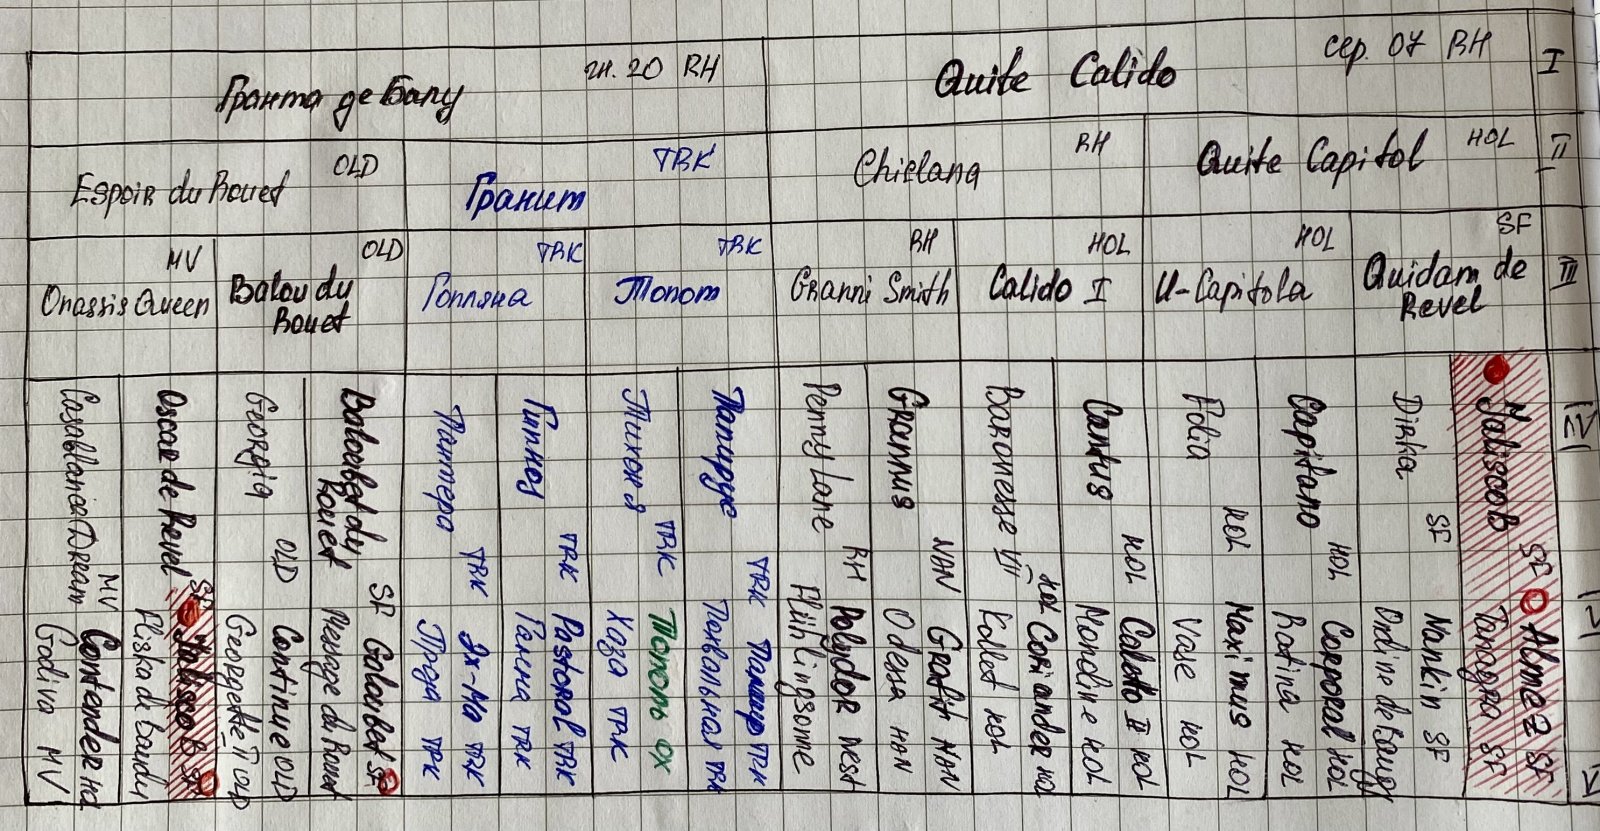 гн. 20 RH
Гранта де Балу
сер. 07 RH
Quite Calido
I
OLD
Espoir du Rouet
TRK
Гранит
RH
Chiclana
HOL
Quite Capitol
II
MV
Onassis Queen
OLD
Balou du
Rouet
TRK
Гопляна
TRK
Топот
RH
Granni Smith
HOL
Calido I
HOL
U-Capitola
SF
Quidam de
Revel
III
Casablanca Dream MV
Oscar de Revel SF
Georgia OLD
Baloubet du
Rouet SF
Пантера TRK
Гипноз TRK
Тихоня TRK
Папирус TRK
Penny Lane RH
Grannus HAN
Baronesse VII HOL
Cantus HOL
Folia HOL
Capitano HOL
Dirka SF
Jalisco B SF
IV
Contender HOL
Godiva MV
Jalisco B SF
Fliska de Baudy
Continue OLD
Georgette II OLD
Galoubet SF
Mesange du Rouet
Эх-Ма TRK
Прода TRK
Pastoral TRK
Ганна TRK
Тополь ОХ
Хоза TRK
TRK
Похвальная TRK
Polydor West
Frühlingsonne
Grafit HAN
Odessa HAN
Coriander HOL
Kollet HOL
Calato II HOL
Monoline HOL
Maximus HOL
Vase HOL
Corporal HOL
Rotina HOL
Nankin SF
Ondine de Baugy
Almé Z SF
Tanagra SF
V